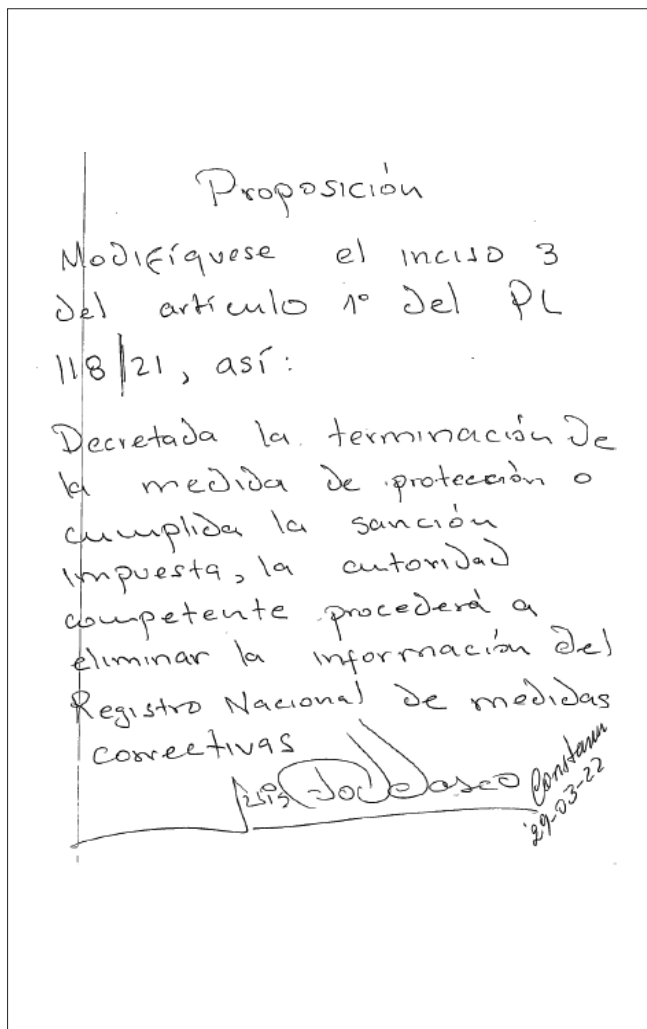 Proposición
Modifíquese el inciso 3
del artículo 1º del PL
118/21, así:
Decretada la terminación de
la medida de protección o
cumplida la sanción
impuesta, la autoridad
competente procederá a
eliminar la información del
Registro Nacional de medidas
correctivas
29-03-22